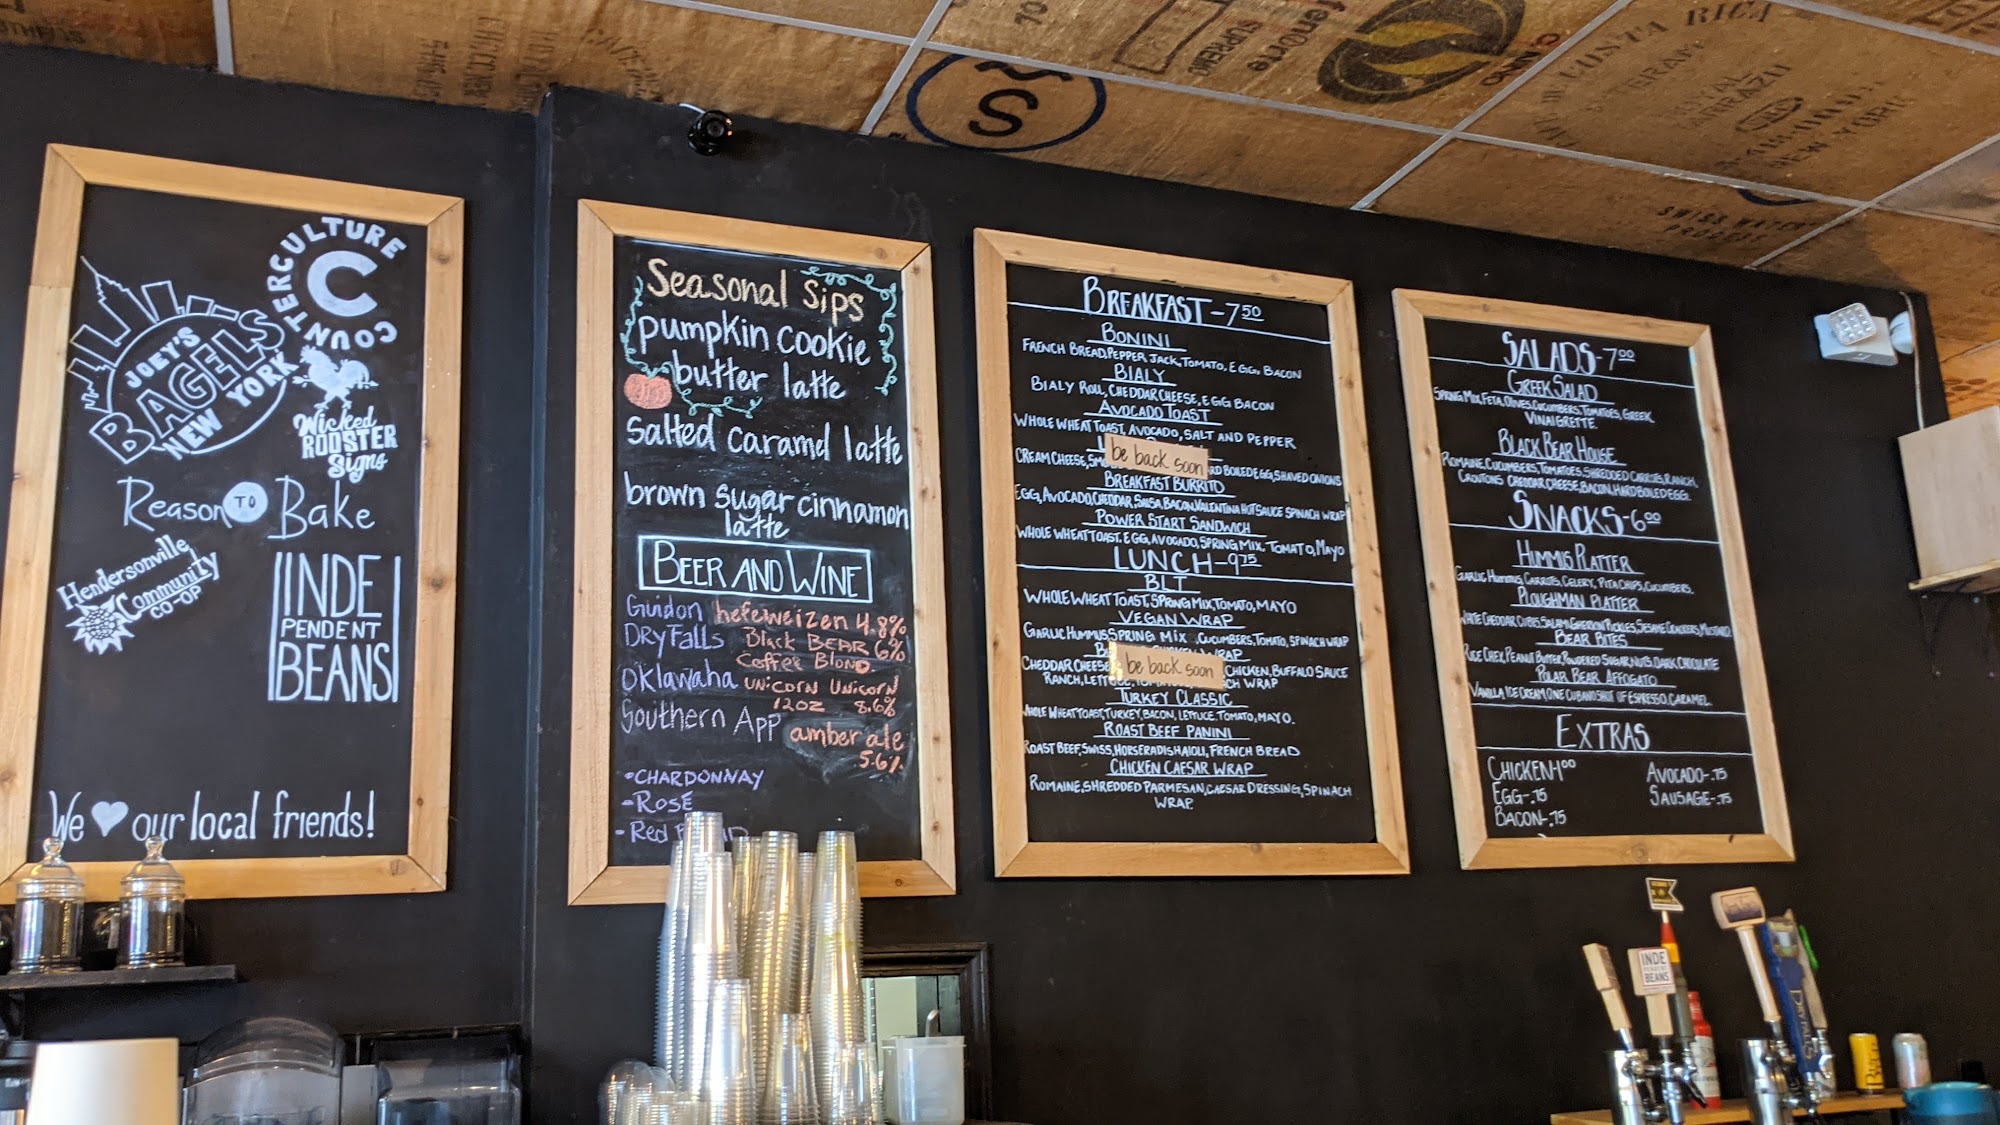 COUNTERCULTURE
C
JOEY'S
BAGELS
NEW YORK
Wicked
ROOSTER
Signs
Reason TO Bake
Hendersonville
Community
CO-OP
INDE
PENDENT
BEANS
We our local friends!
Seasonal Sips
pumpkin cookie
butter latte
salted caramel latte
brown sugar cinnamon
latte
BEER AND WINE
Guidon hefeweizen 4.8%
DRY FALLS Black BEAR 6%
Coffee Blond
Oklawaha UNICORN UNICORN
12oz 8.6%
Southern App amber ale
5.6%
•CHARDONNAY
-ROSÉ
-Red
BREAKFAST-7.50
BONINI
FRENCH BREAD, PEPPER JACK, TOMATO, EGG, BACON
BIALY
BIALY ROLL, CHEDDAR CHEESE, EGG BACON
AVOCADO TOAST
WHOLE WHEAT TOAST, AVOCADO, SALT AND PEPPER
be back soon
CREAM CHEESE, BOILED EGG, SHAVED ONIONS
BREAKFAST BURRITO
EGG, AVOCADO, CHEDDAR, SALSA, BACON, VALENTINA HOT SAUCE SPINACH WRAP
POWER START SANDWICH
WHOLE WHEAT TOAST, EGG, AVOCADO, SPRING MIX, TOMATO, MAYO
LUNCH-9.75
BLT
WHOLE WHEAT TOAST, SPRING MIX, TOMATO, MAYO
VEGAN WRAP
GARLIC HUMMUS, SPRING MIX, CUCUMBERS, TOMATO, SPINACH WRAP
WRAP
be back soon
CHEDDAR CHEESE CHICKEN, BUFFALO SAUCE
RANCH, WRAP
TURKEY CLASSIC
WHOLE WHEAT TOAST, TURKEY, BACON, LETTUCE, TOMATO, MAYO.
ROAST BEEF PANINI
ROAST BEEF, SWISS, HORSERADISH AIOLI, FRENCH BREAD
CHICKEN CAESAR WRAP
ROMAINE, SHREDDED PARMESAN, CAESAR DRESSING, SPINACH
WRAP.
SALADS-7.00
GREEK SALAD
SPRING MIX, FETA, OLIVES, CUCUMBERS, TOMATOES, GREEK
VINAIGRETTE
BLACK BEAR HOUSE
ROMAINE, CUCUMBERS, TOMATOES, SHREDDED CARROTS, RANCH,
CROUTONS CHEDDAR CHEESE, BACON, HARD BOILED EGG.
SNACKS-6.00
HUMMUS PLATTER
GARLIC HUMMUS, CARROTS, CELERY, PITA CHIPS, CUCUMBERS.
PLOUGHMAN PLATTER
WHITE CHEDDAR CUBES, SALAMI, GHERKIN PICKLES, SESAME CRACKERS, MUSTARD.
BEAR BITES
RICE CHEX, PEANUT BUTTER, POWDERED SUGAR, NUTS, DARK CHOCOLATE
POLAR BEAR AFFOGATO
VANILLA ICE CREAM, ONE CUBANO SHOT OF ESPRESSO, CARAMEL.
EXTRAS
CHICKEN-1.00 AVOCADO-.75
EGG-.75 SAUSAGE-.75
BACON-.75
S
SUPREMO
COSTA RICA
NEW YORK
SWISS WATER
PROCESS
INDE
PENDENT
BEANS